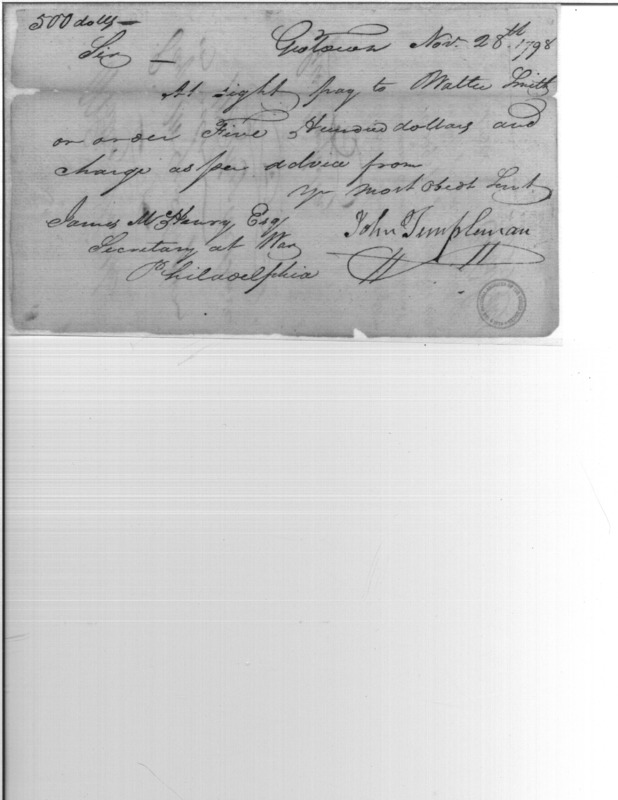 500 dolls —
Geo Town Nov. 28th 1798
Sir —
At sight pay to Walter Smith
or order Five Hundred dollars and
charge as per advice from
Yr most Obedt Servt
John Templeman
James McHenry Esqr
Secretary at War
Philadelphia